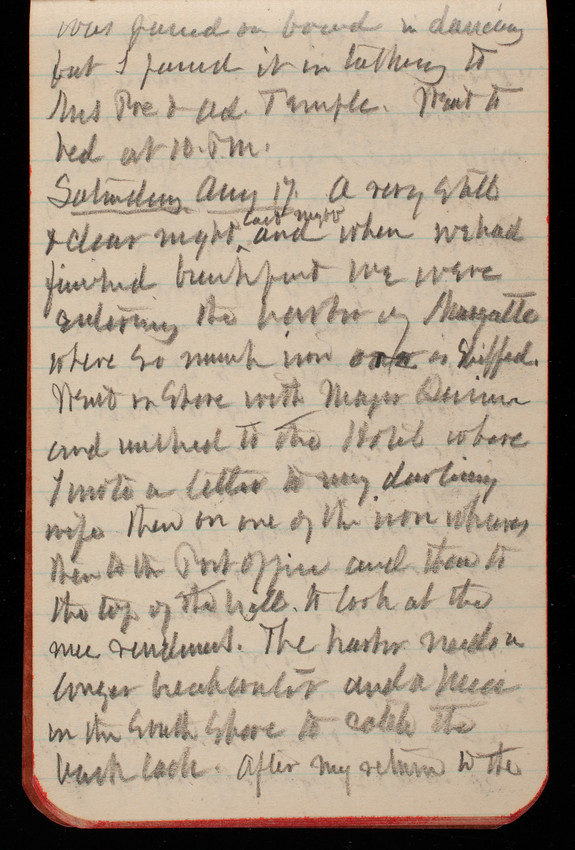 was passed on board in dancing
but I passed it in talking to
Mrs Poe & Ad. Temple. Went to
bed at 10. P.M.
Saturday Aug 17. A very still
& clear night last night and when we had
finished breakfast we were
entering the harbor of Marquette
where so much iron ore is shipped.
Went on shore with Major
and walked to the Hotel where
I wrote a letter to my darling
wife then on one of the iron wharves
then to the Post Office and then to
the top of the hill to look at the
nice residences. The harbor needs a
longer breakwater and a piece
on the South Shore to catch the
back . After my return to the